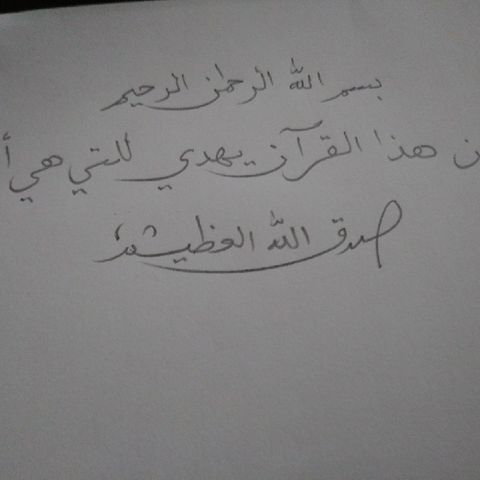 بسم الله الرحمن الرحيم
ن هذا القرآن يهدي للتي هي أ
صدق الله العظيم